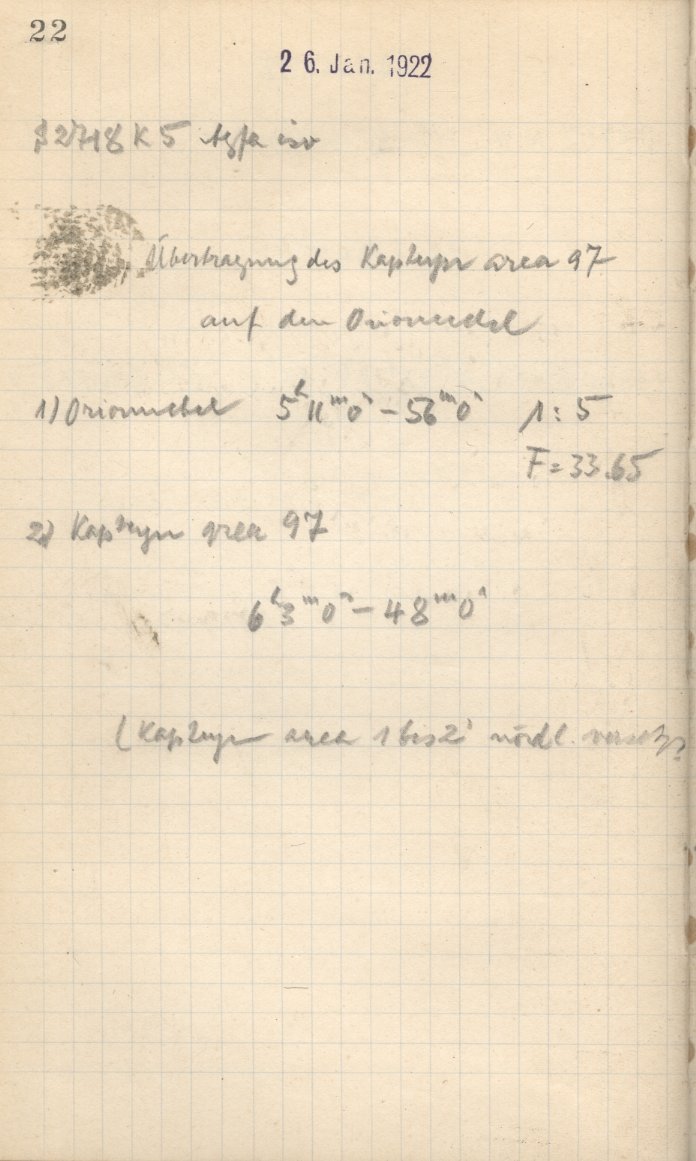 22
26. Jan. 1922
B 2718 K 5 Agfa iso
Übertragung des Kapteyn area 97
auf den Orionnebel
1) Orionnebel 5ʰ11ᵐ0ˢ – 56ᵐ0ˢ 1:5
F = 33.65
2) Kapteyn area 97
6ʰ3ᵐ0ˢ – 48ᵐ0ˢ
(Kapteyn area 1 bis 2' nördl. versetzt